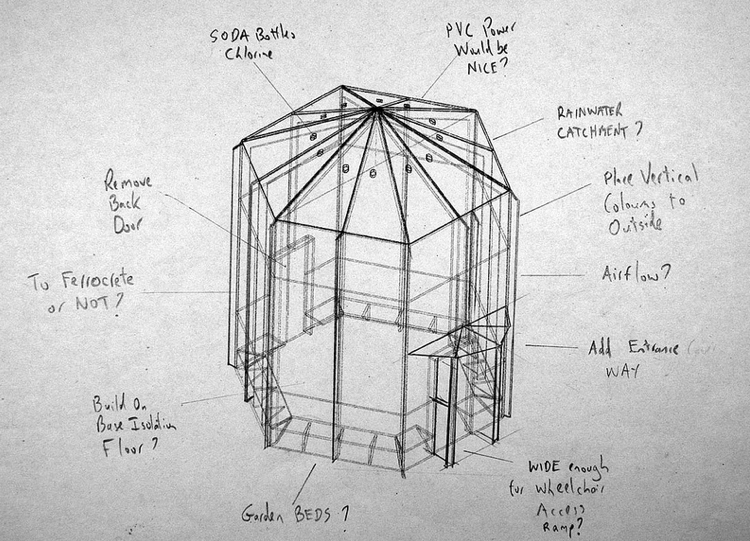 SODA Bottles
Chlorine
PVC Power
Would be
NICE?
RAINWATER
CATCHMENT?
Remove
Back
Door
Place Vertical
Coloums to
Outside
To Ferrocrete
or NOT?
Airflow?
Add Entrance
WAY
Build On
Base Isolation
Floor?
WIDE enough
for wheelchair
Access
Ramp?
Garden BEDS?